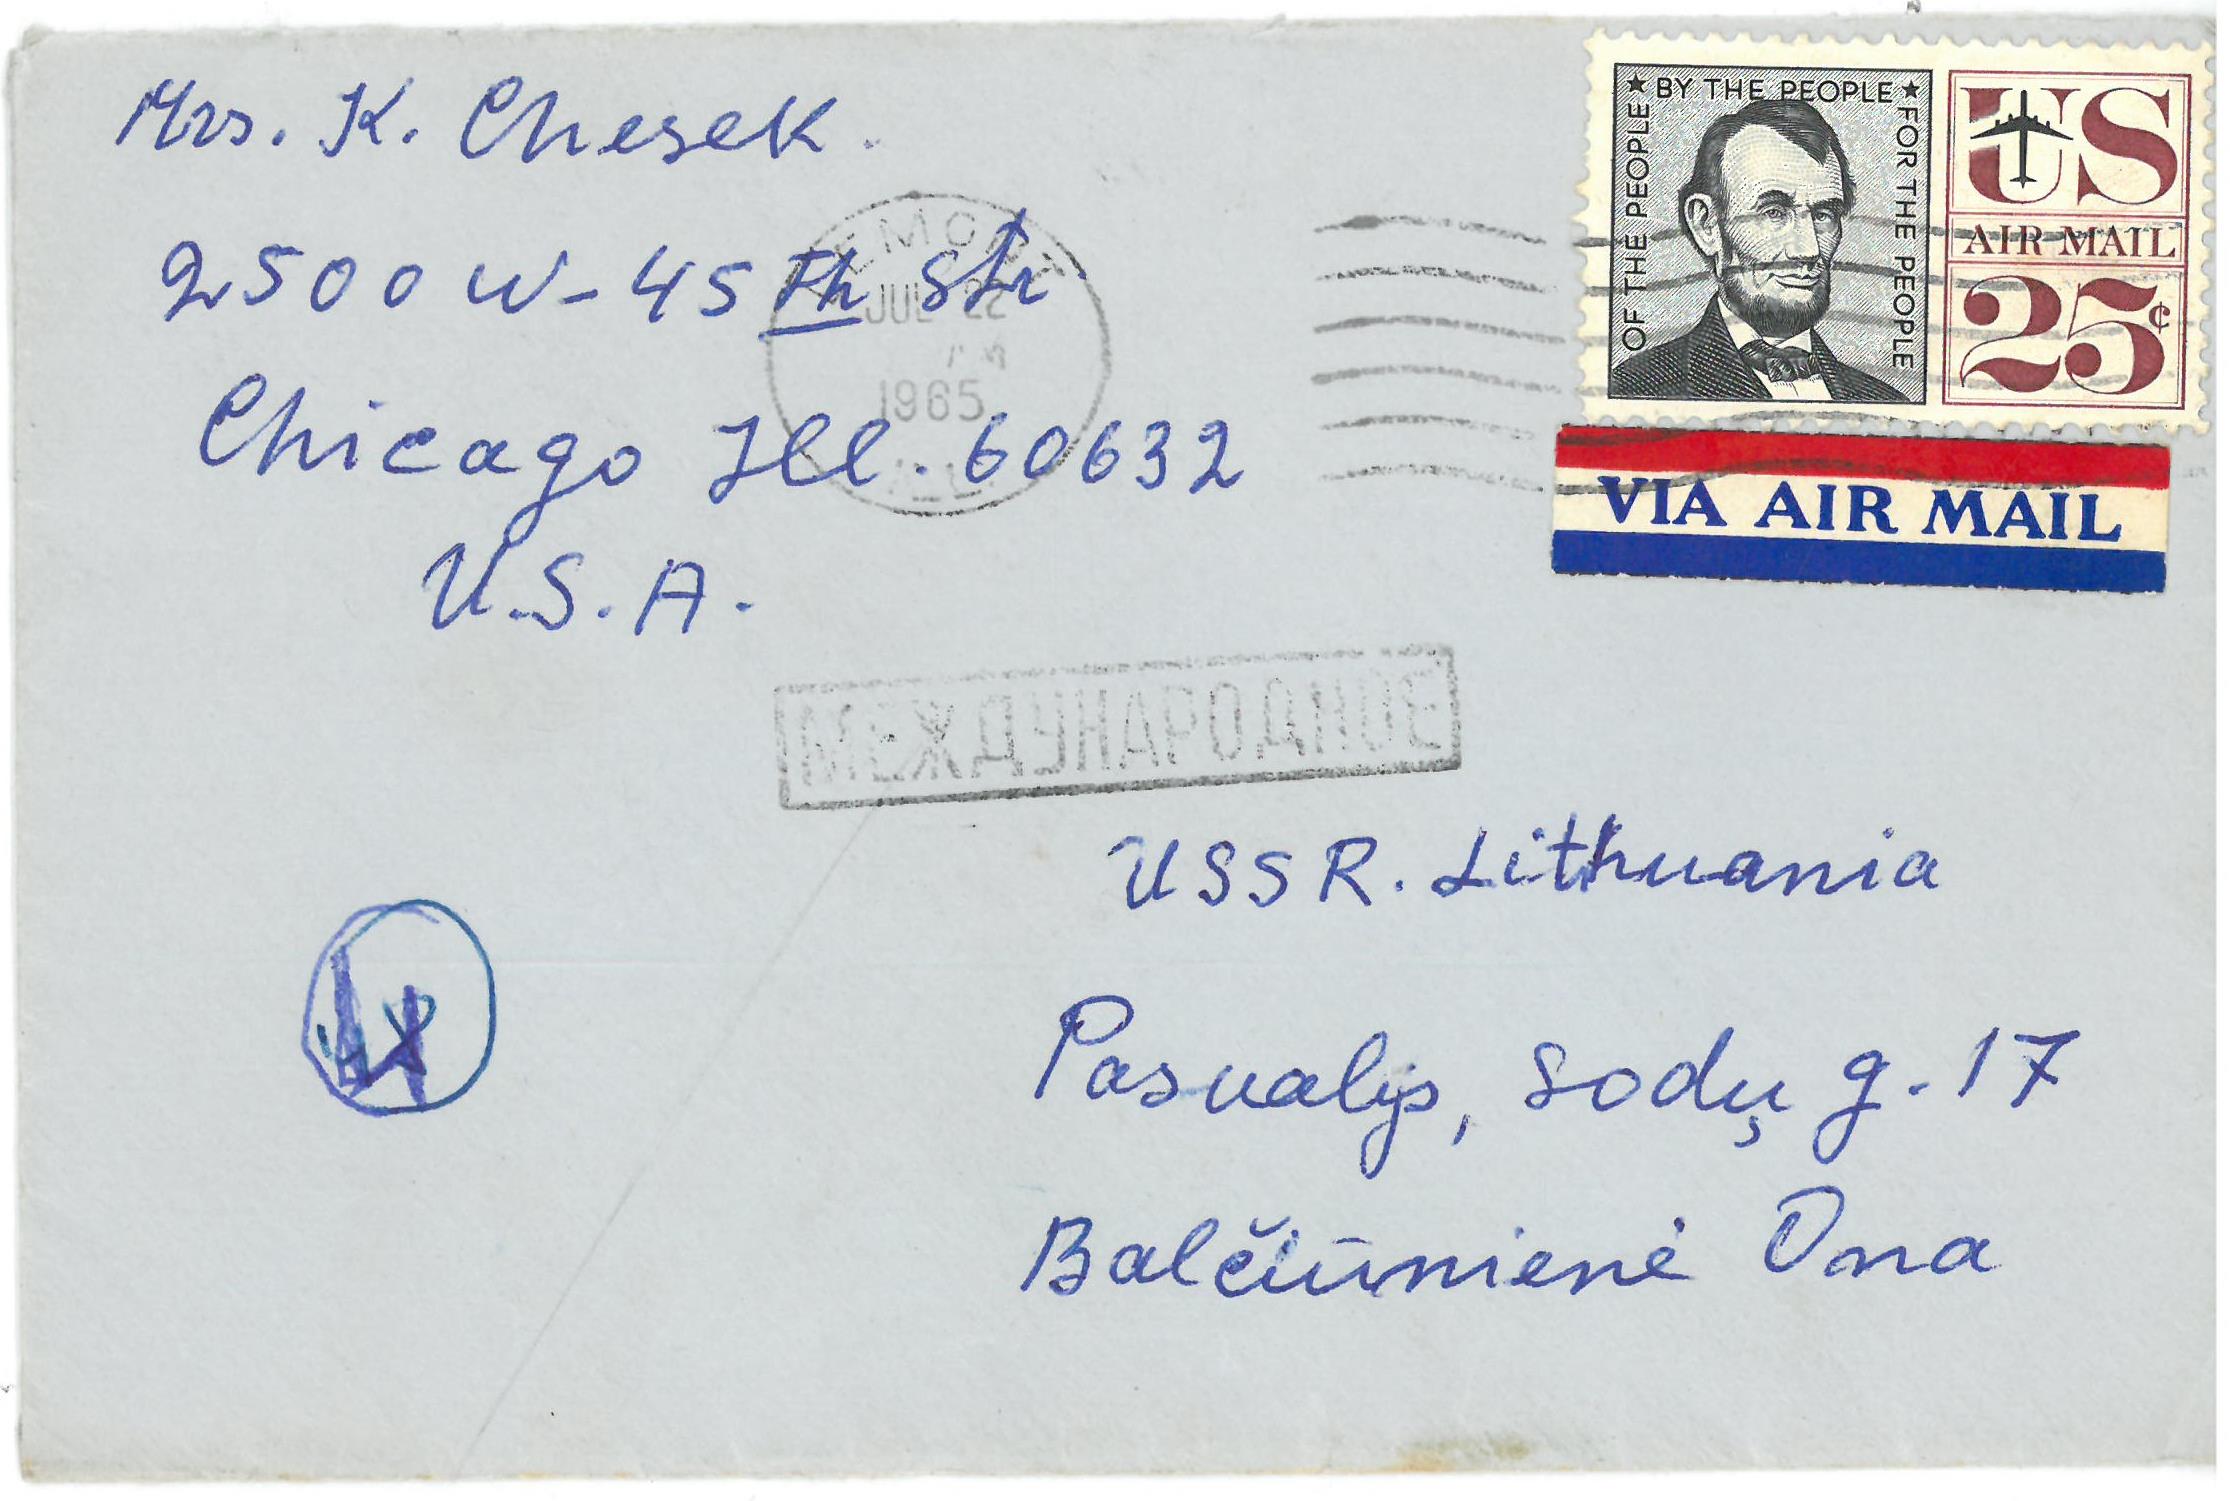 Mrs. K. Chesek.
2500 W - 45th Str
Chicago Ill. 60632
U.S.A.
LEMONT
JUL 22
PM
1965
ILL.
OF THE PEOPLE ★ BY THE PEOPLE ★ FOR THE PEOPLE
US
AIR MAIL
25¢
VIA AIR MAIL
МЕЖДУНАРОДНОЕ
USSR. Lithuania
Pasvalys, Sodų g. 17
Balčiūnienė Ona